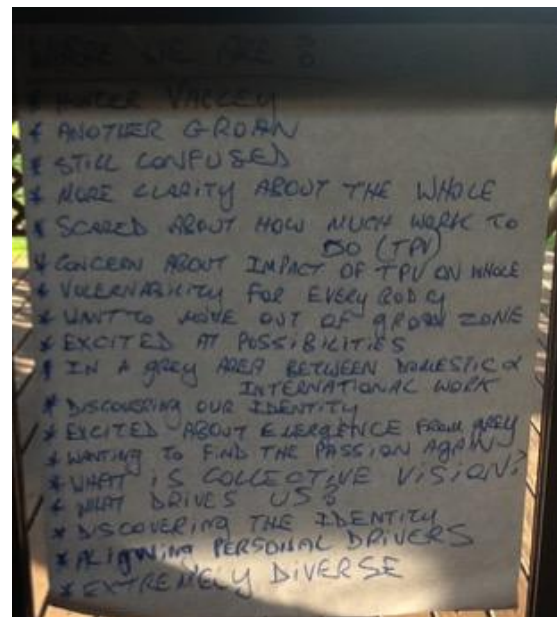 WHERE WE ARE?
* HUNTER VALLEY
* ANOTHER GROAN
* STILL CONFUSED
* MORE CLARITY ABOUT THE WHOLE
* SCARED ABOUT HOW MUCH WORK TO
DO (TPV)
* CONCERN ABOUT IMPACT OF TPV ON WHOLE
* VULERNABILITY FOR EVERYBODY
* WANT TO MOVE OUT OF GROAN ZONE
* EXCITED AT POSSIBILITIES
* IN A GREY AREA BETWEEN DOMESTIC &
INTERNATIONAL WORK
* DISCOVERING OUR IDENTITY
* EXCITED ABOUT EMERGENCE FROM GREY
* WANTING TO FIND THE PASSION AGAIN
* WHAT IS COLLECTIVE VISION?
* WHAT DRIVES US?
* DISCOVERING THE IDENTITY
* ALIGNING PERSONAL DRIVERS
* EXTREMELY DIVERSE